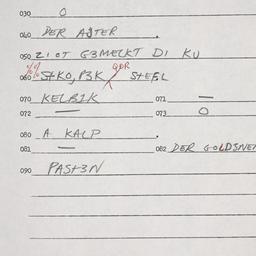 030 O
040 DER AJTER
050 ZIOT G3MELKT DI KU
060 StKO, P3K GDR STEFSL
070 KELBIK 071 —
072 — 073 O
080 A KALP
081 — 082 DER GOLDSNEI
090 PAST3N